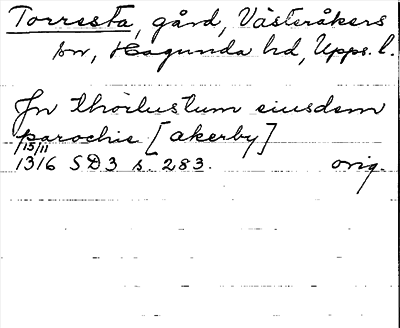 Torresta, gård, Västeråkers
sn, Hagunda hd, Upps. l.
In thorlustum eiusdem
parochie [akerby]
15/11
1316 SD3 s. 283. orig.